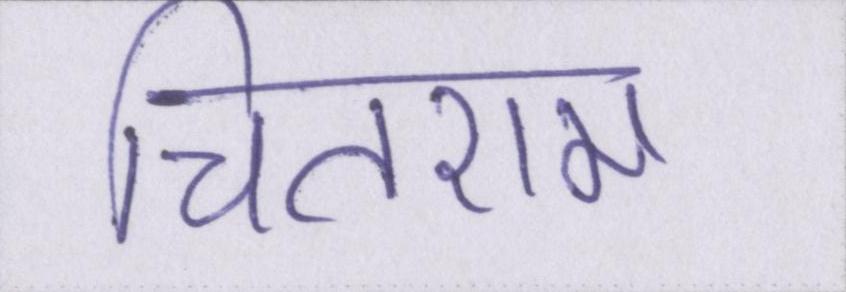 चितराम